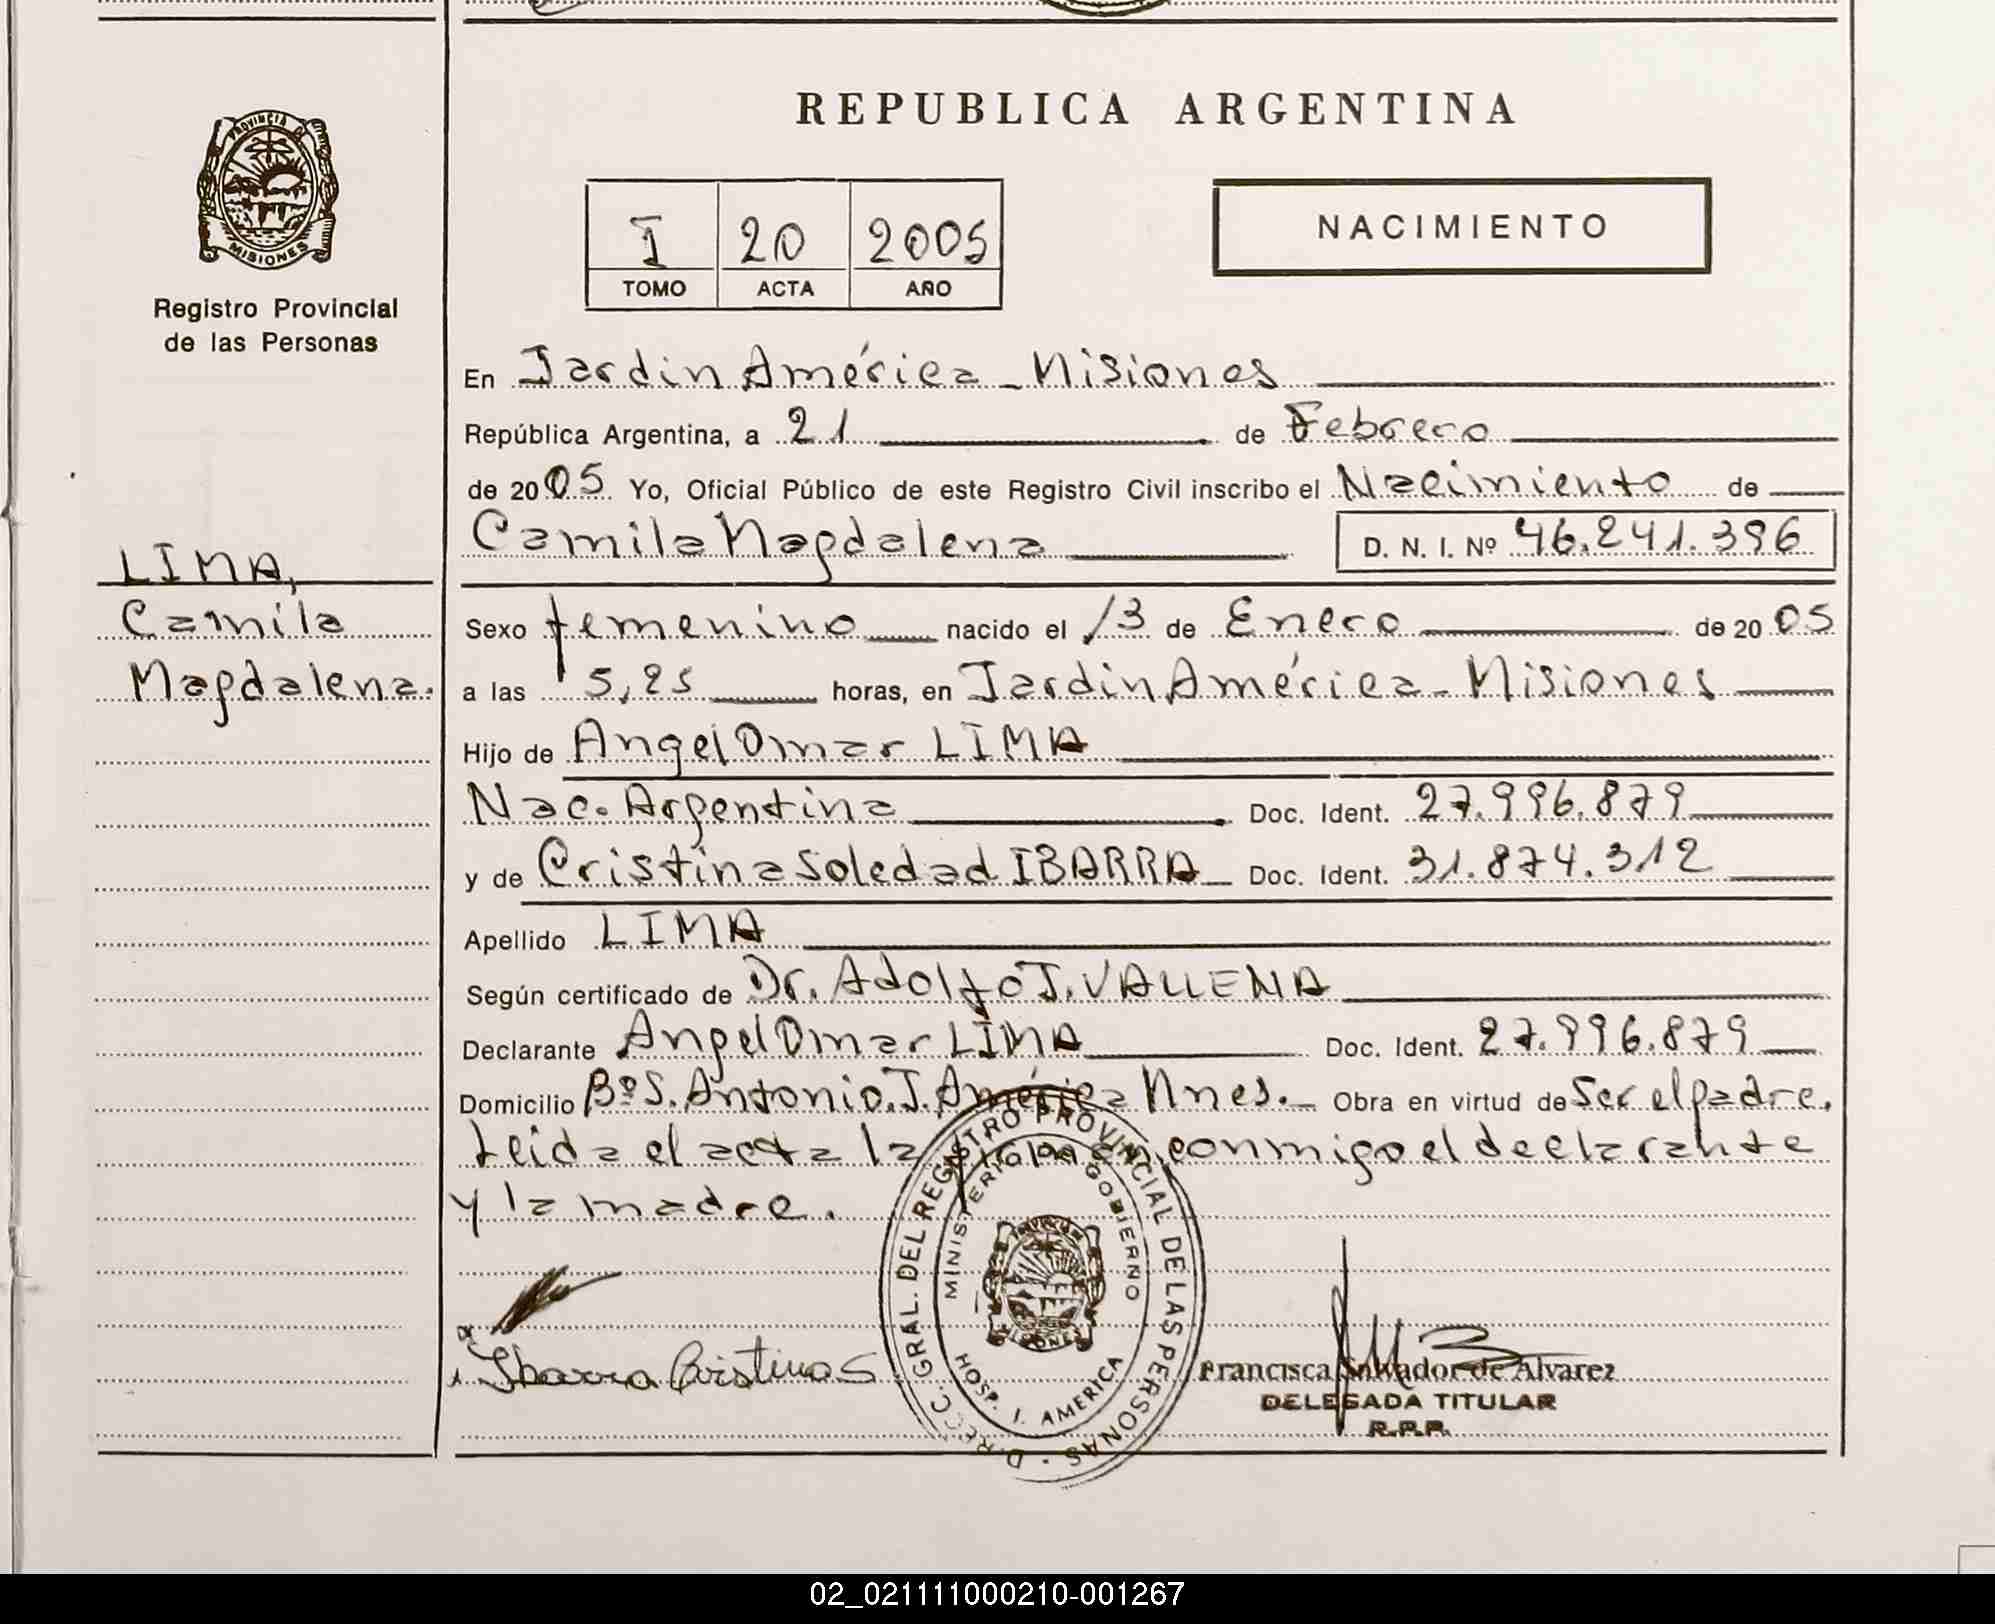 REPUBLICA ARGENTINA
PROVINCIA DE
MISIONES
Registro Provincial
de las Personas
I 20 2005
TOMO ACTA AÑO
NACIMIENTO
En Jardin América - Misiones
República Argentina, a 21 de Febrero
de 2005 Yo, Oficial Público de este Registro Civil inscribo el Nacimiento de
Camila Magdalena D. N. I. Nº 46.241.396
LIMA,
Camila
Magdalena.
Sexo femenino nacido el 13 de Enero de 2005
a las 5,25 horas, en Jardin América - Misiones
Hijo de Angel Omar LIMA
Nac. Argentina Doc. Ident. 27.996.879
y de Cristina Soledad IBARRA Doc. Ident. 31.874.312
Apellido LIMA
Según certificado de Dr. Adolfo J. VALLEMA
Declarante Angel Omar LIMA Doc. Ident. 27.996.879
Domicilio Bº S. Antonio. J. América Mnes. Obra en virtud de Ser el padre.
Leida el acta la firman conmigo el declarante
y la madre.
DIRECC. GRAL. DEL REGISTRO PROVINCIAL DE LAS PERSONAS
MINISTERIO DE GOBIERNO
HOSP. J. AMERICA
Ibarra Cristina S
Francisca Salvador de Alvarez
DELEGADA TITULAR
R.P.P.
02_021111000210-001267